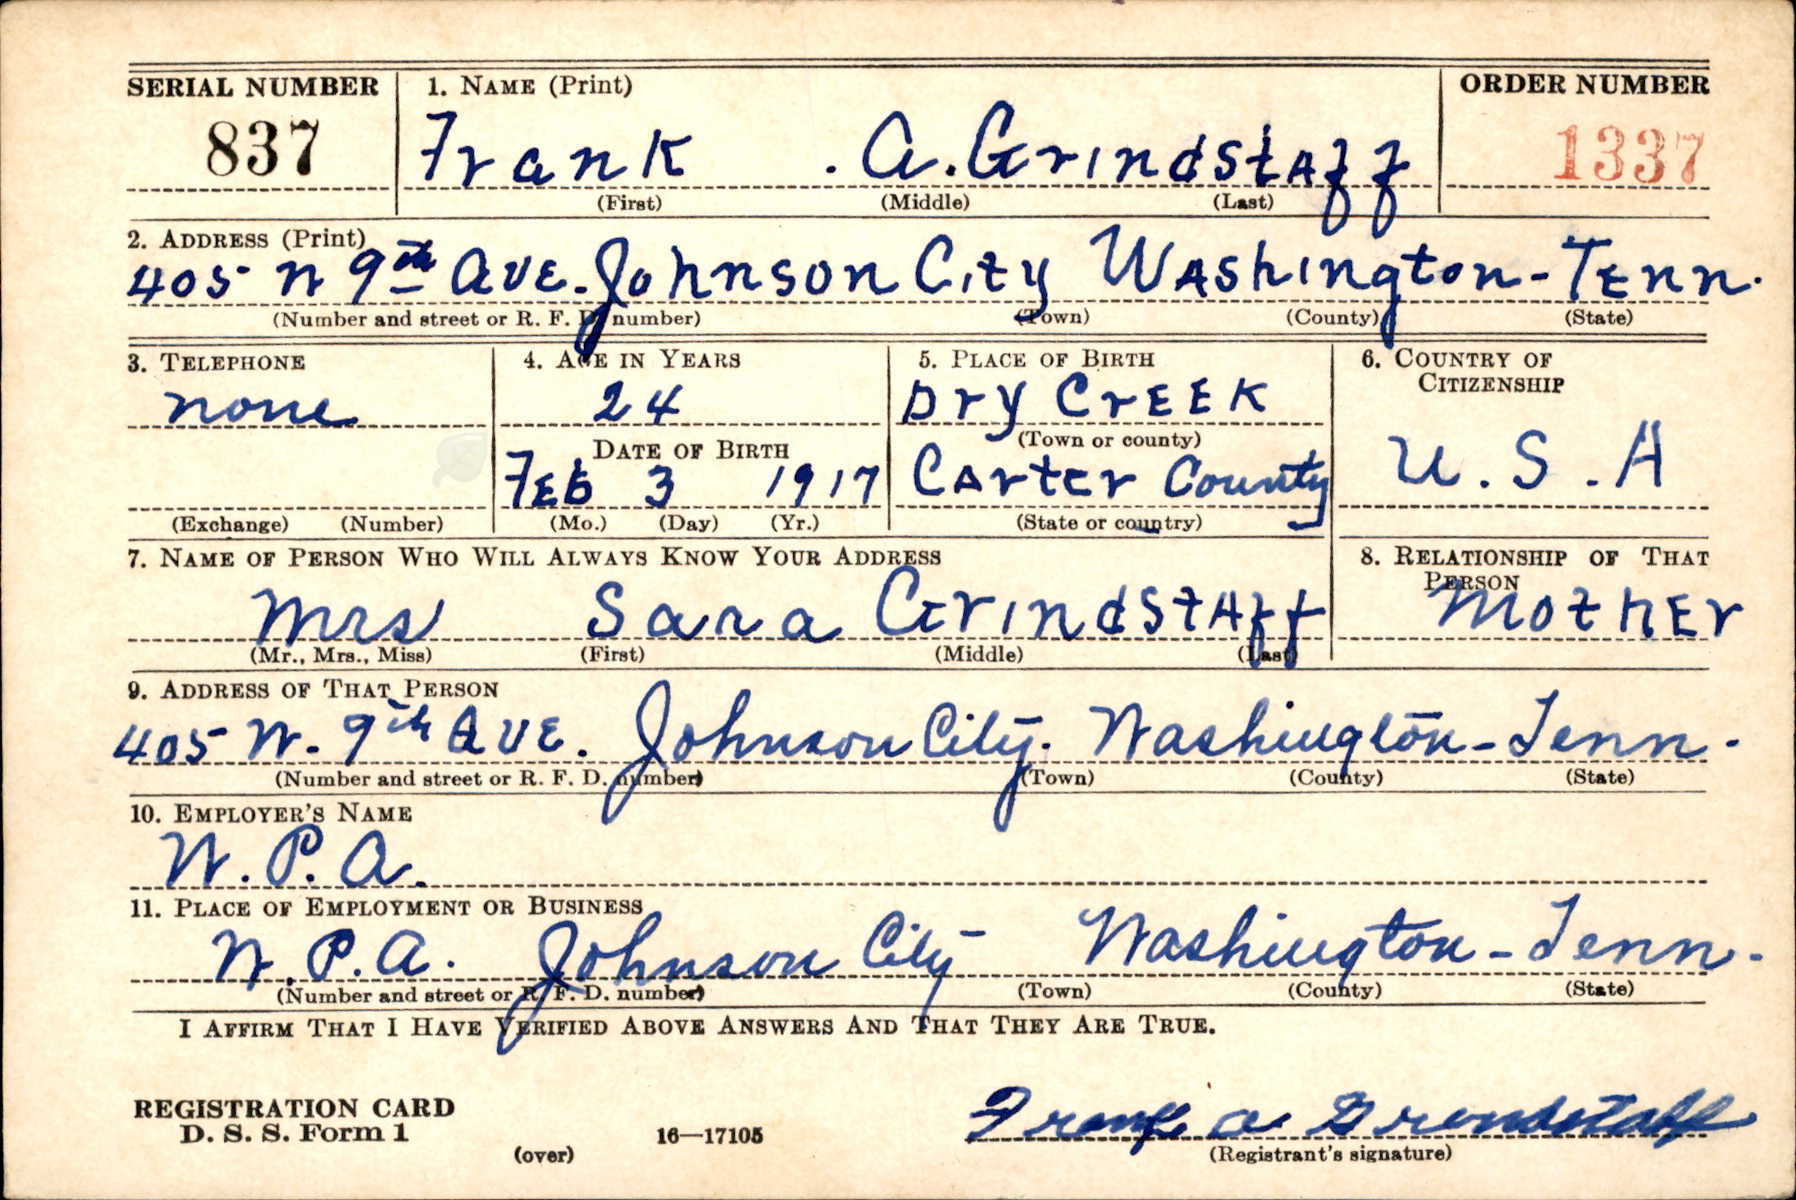 SERIAL NUMBER 1. NAME (Print) ORDER NUMBER
837 Frank . A. Grindstaff 1337
(First) (Middle) (Last)
2. ADDRESS (Print)
405 N 9th AVE. Johnson City Washington - Tenn.
(Number and street or R. F. D. number) (Town) (County) (State)
3. TELEPHONE 4. AGE IN YEARS 5. PLACE OF BIRTH 6. COUNTRY OF CITIZENSHIP
none 24 Dry Creek
DATE OF BIRTH (Town or county)
Feb 3 1917 Carter County U. S. A
(Exchange) (Number) (Mo.) (Day) (Yr.) (State or country)
7. NAME OF PERSON WHO WILL ALWAYS KNOW YOUR ADDRESS 8. RELATIONSHIP OF THAT PERSON
Mrs Sara Grindstaff Mother
(Mr., Mrs., Miss) (First) (Middle) (Last)
9. ADDRESS OF THAT PERSON
405 N. 9th AVE. Johnson City. Washington - Tenn.
(Number and street or R. F. D. number) (Town) (County) (State)
10. EMPLOYER'S NAME
W. P. A.
11. PLACE OF EMPLOYMENT OR BUSINESS
W. P. A. Johnson City Washington - Tenn.
(Number and street or R. F. D. number) (Town) (County) (State)
I AFFIRM THAT I HAVE VERIFIED ABOVE ANSWERS AND THAT THEY ARE TRUE.
REGISTRATION CARD
D. S. S. Form 1
(over) 16—17105
Frank A Grindstaff
(Registrant's signature)